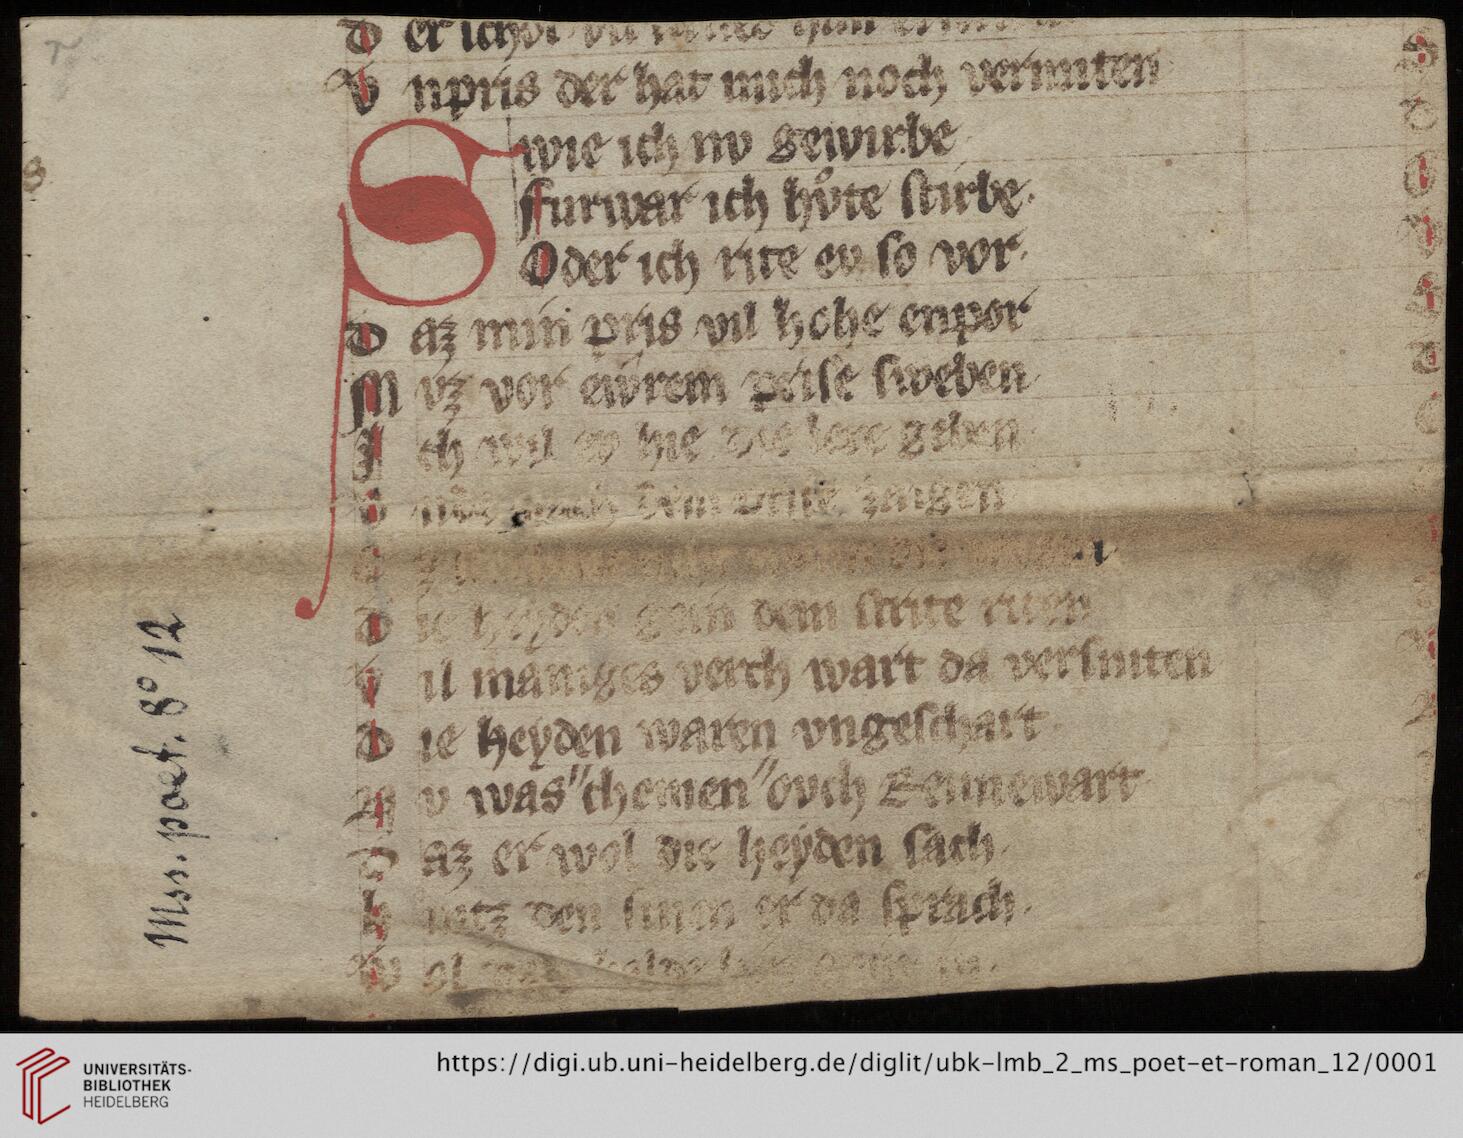 D er ichpt vil
V npris der hat mich noch vermiten
Swie ich nv gewirbe
Furwar ich hůte stirbe.
Oder ich rite ev so vor.
D aʒ min pris vil hohe enpor
M vʒ vor ewrem prise sweben
I ch wil ev hie die lere geben
V nde nach dem prise
D ie heyden gein dem strite riten
V il maniges verch wart da versniten
D ie heyden waren vngeschart.
N v was "chomen" ovch Rennewart
D aʒ er wol die heyden sach.
den sinen er da sprach.
W ol
Mss. poet. 8° 12
UNIVERSITÄTS-
BIBLIOTHEK
HEIDELBERG
https://digi.ub.uni-heidelberg.de/diglit/ubk-lmb_2_ms_poet-et-roman_12/0001